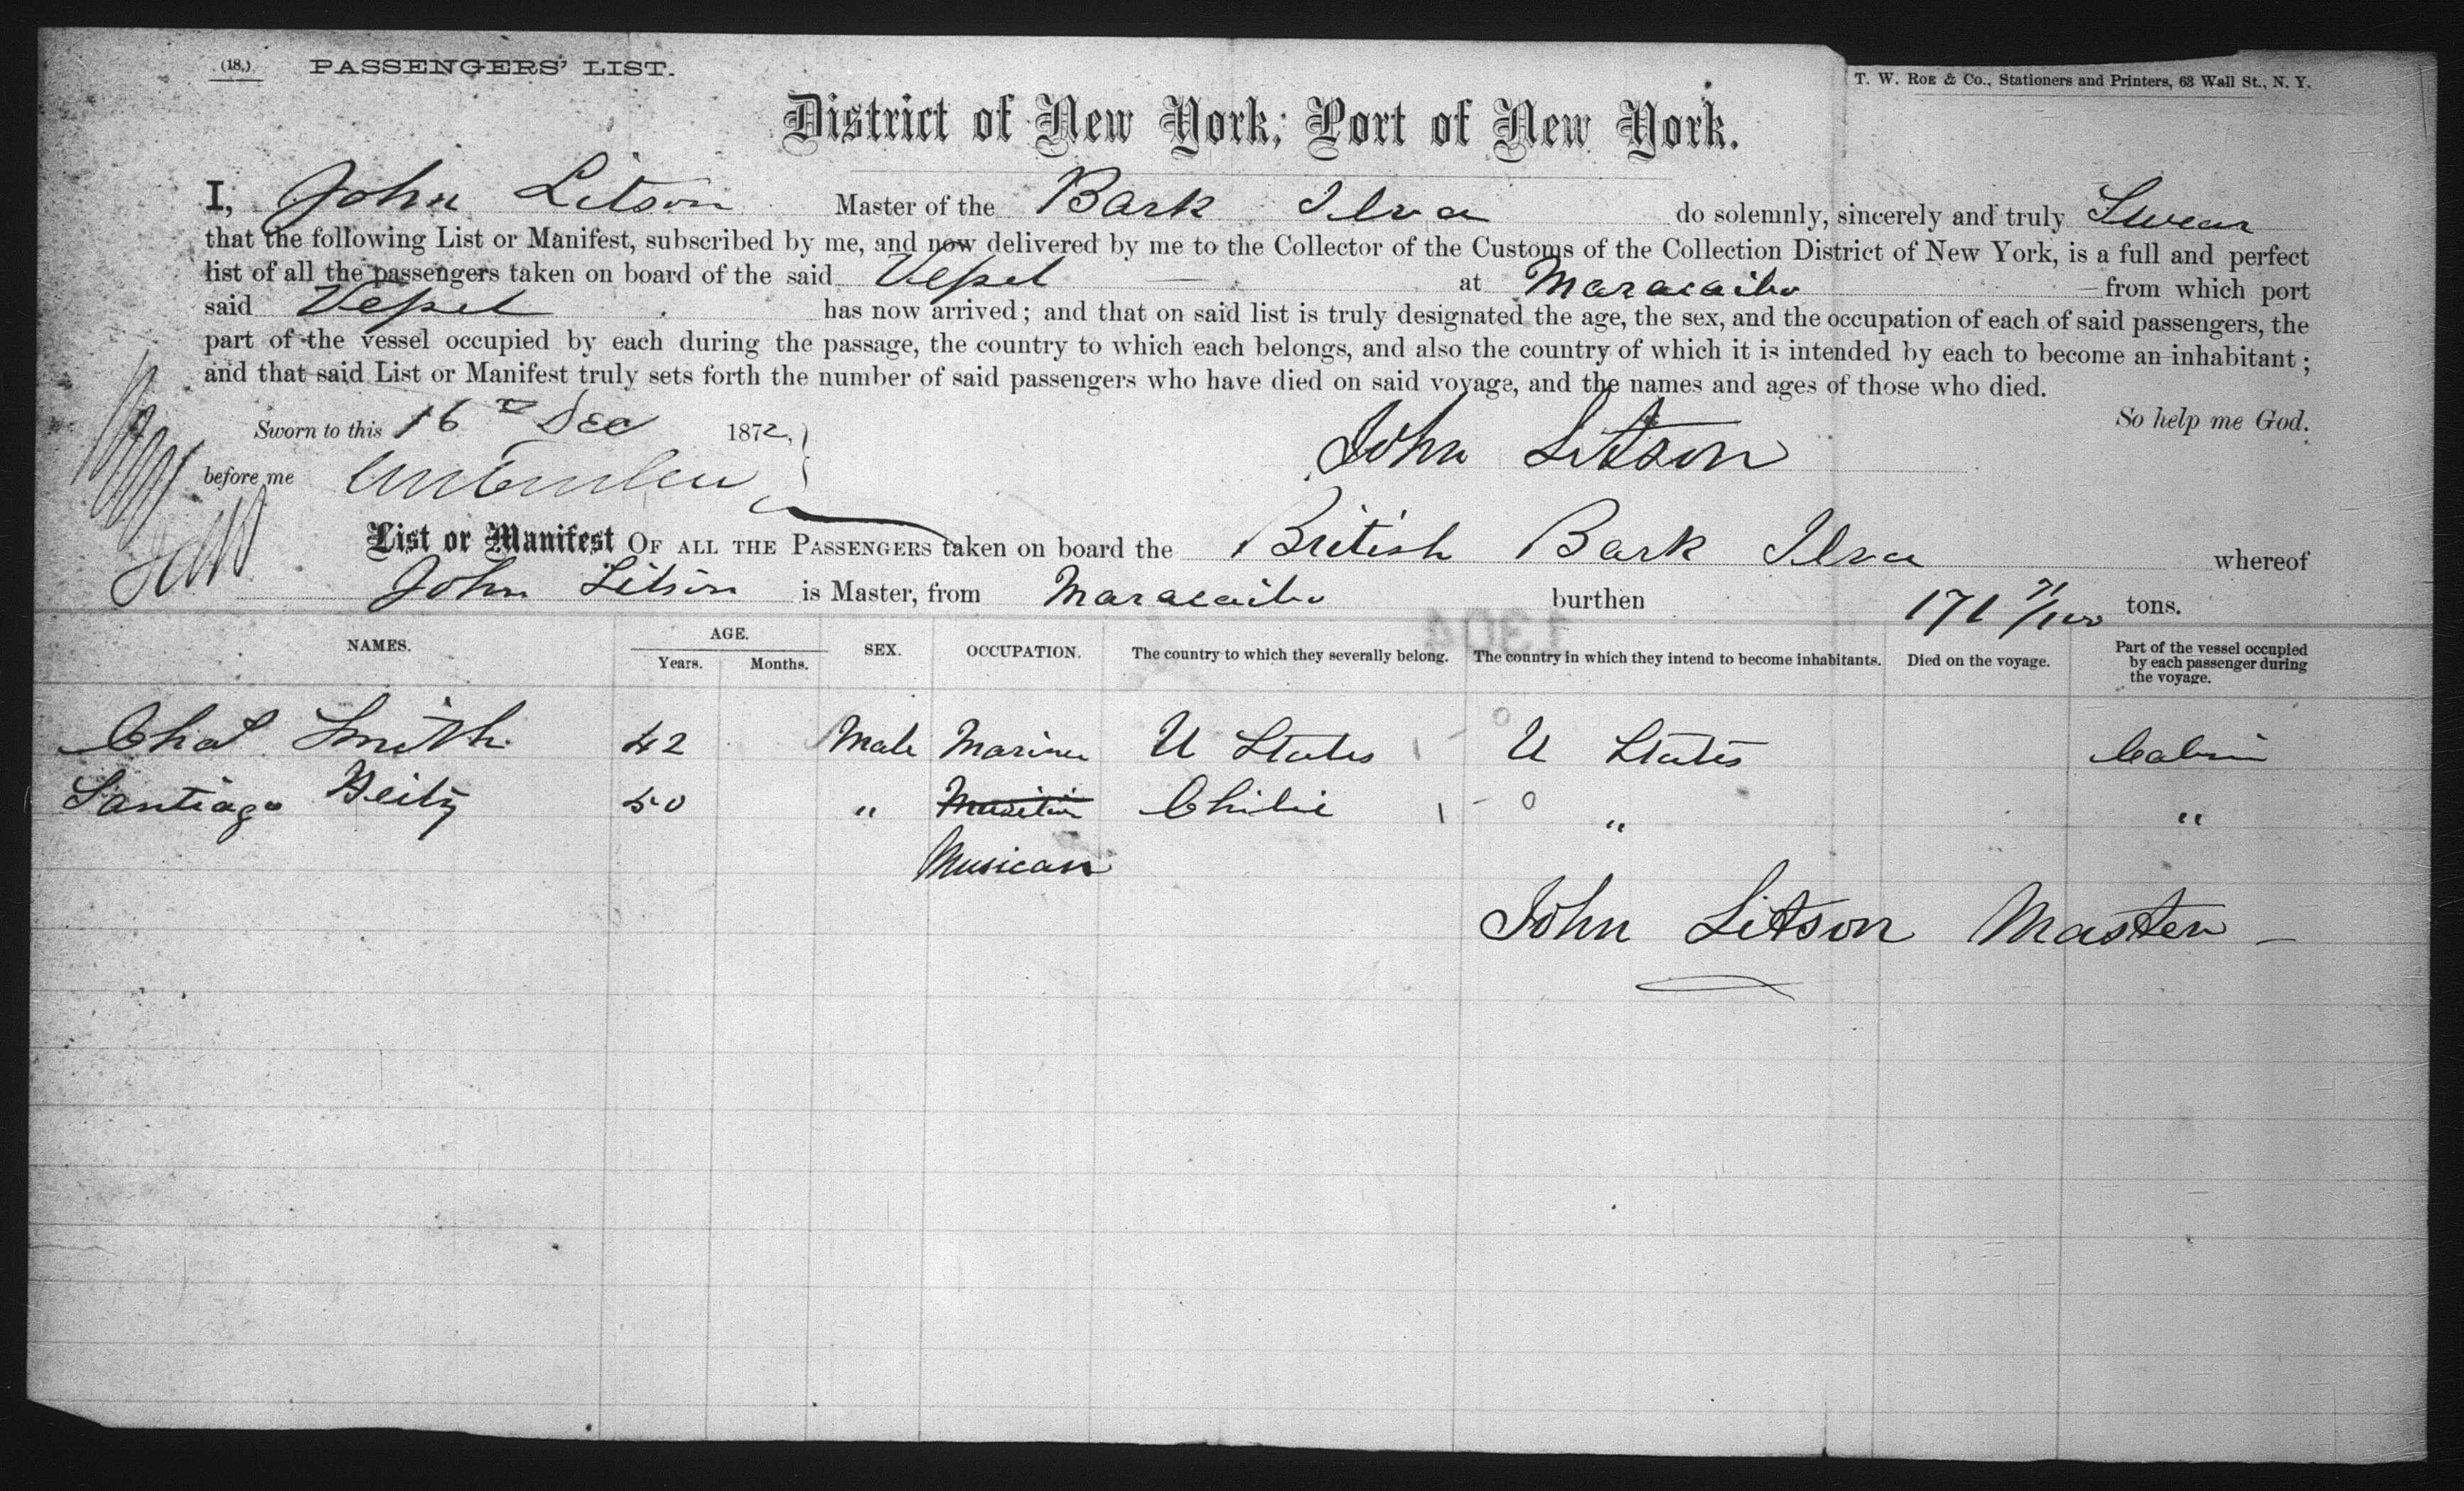 (18.) PASSENGERS' LIST.
T. W. ROE & Co., Stationers and Printers, 63 Wall St., N. Y.
District of New York; Port of New York.
I, John Litson Master of the Bark Ilva do solemnly, sincerely and truly Swear
that the following List or Manifest, subscribed by me, and now delivered by me to the Collector of the Customs of the Collection District of New York, is a full and perfect
list of all the passengers taken on board of the said Vessel at Maracaibo from which port
said Vessel has now arrived; and that on said list is truly designated the age, the sex, and the occupation of each of said passengers, the
part of the vessel occupied by each during the passage, the country to which each belongs, and also the country of which it is intended by each to become an inhabitant;
and that said List or Manifest truly sets forth the number of said passengers who have died on said voyage, and the names and ages of those who died.
So help me God.
Sworn to this 16th Dec 1872,
John Litson
before me
List or Manifest OF ALL THE PASSENGERS taken on board the British Bark Ilva whereof
John Litson is Master, from Maracaibo burthen 171 71/100 tons.
1304
NAMES. AGE. Years. Months. SEX. OCCUPATION. The country to which they severally belong. The country in which they intend to become inhabitants. Died on the voyage. Part of the vessel occupied by each passenger during the voyage.
Chas Smith 42 Male Mariner U States 1 - 0 U States Cabin
Santiago 50 " Chilie 1 - 0 " "
Musican
John Litson Master